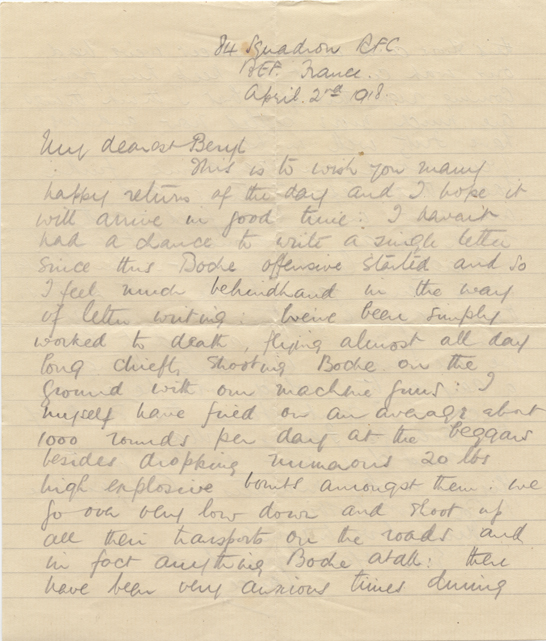 84 Squadron RFC
BEF. France.
April. 2nd 1918.
My dearest Beryl
This is to wish you many
happy returns of the day and I hope it
will arrive in good time: I haven't
had a chance to write a single letter
since this Boche offensive started and so
I feel much behindhand in the way
of letter writing: We've been simply
worked to death, flying almost all day
long chiefly shooting Boche on the
ground with our machine guns: I
myself have fired on an average about
1000 rounds per day at the beggars
besides dropping numerous 20 lbs
high explosive bombs amongst them: we
go over very low down and shoot up
all their transports on the roads and
in fact anything Boche atall: there
have been very anxious times during